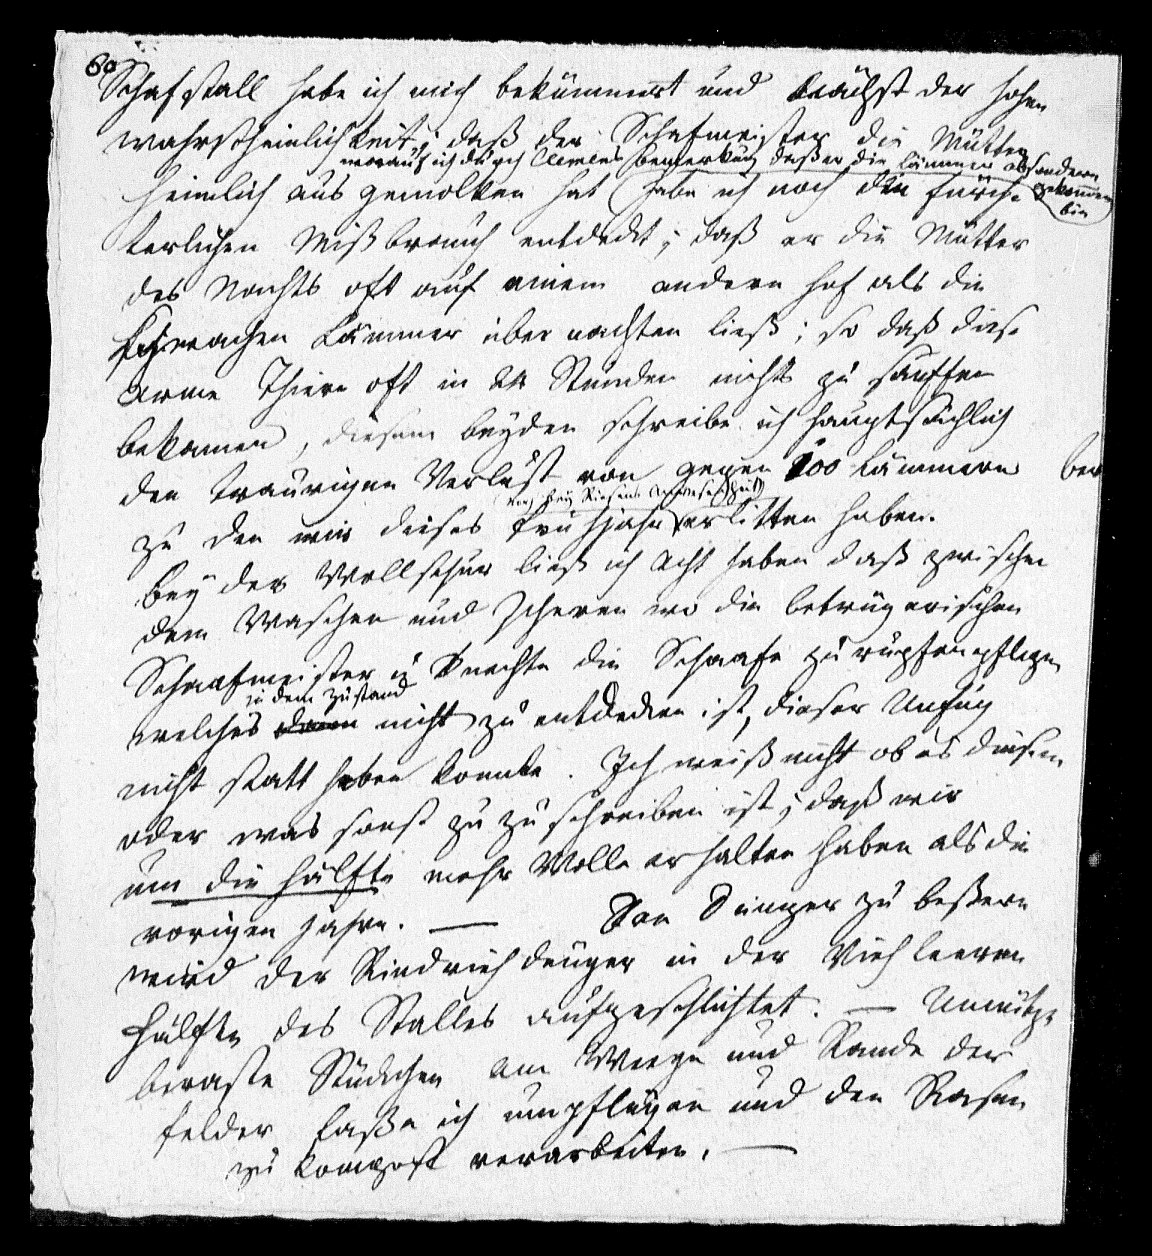 60
Schafstall habe ich mich bekümmert und nächst der hohen
wahrscheinlichkeit, daß der Schafmeister die Mütter
worauf ich durch Clemens bemerkung daß er die Lämmer absondern gekommen bin
heimlich aus gemolken hat habe ich noch den fürch-
terlichen Mißbrauch entdeckt; daß er die Mütter
des Nachts oft auf einem andern Hof als die
schwachen Lämmer über nachten ließ; so daß diese
arme Thiere oft in 24 Stunden nichts zu sauffen
bekamen, diesem beyden schreibe ich hauptsächlich
den traurigen Verlust von gegen 200 Lämmern bey
zu den wir dieses Frühjahr erlitten haben.
Bey der Wollschur ließ ich Acht haben daß zwischen
dem Waschen und Scheren wo die betrügerischen
Schaafmeister u Knechte die Schaafe zu rupfen pflegen
in dem Zustand
welches nicht zu entdecken ist, dieser Unfug
nicht statt haben konnte. Ich weiß nicht ob es diesem
oder was sonst zu zu schreiben ist; daß wir
um die Hälfte mehr Wolle erhalten haben als die
vorigen Jahre. — Den Dünger zu beßern
wird der Rindviehdünger in der Vieh leeren
Hälfte des Stalles aufgeschlichtet. — Unnütze
beraste Stückchen am Weege und Rande der
Felder laße ich umpflügen und den Rasen
zu Kompost verarbeiten. —